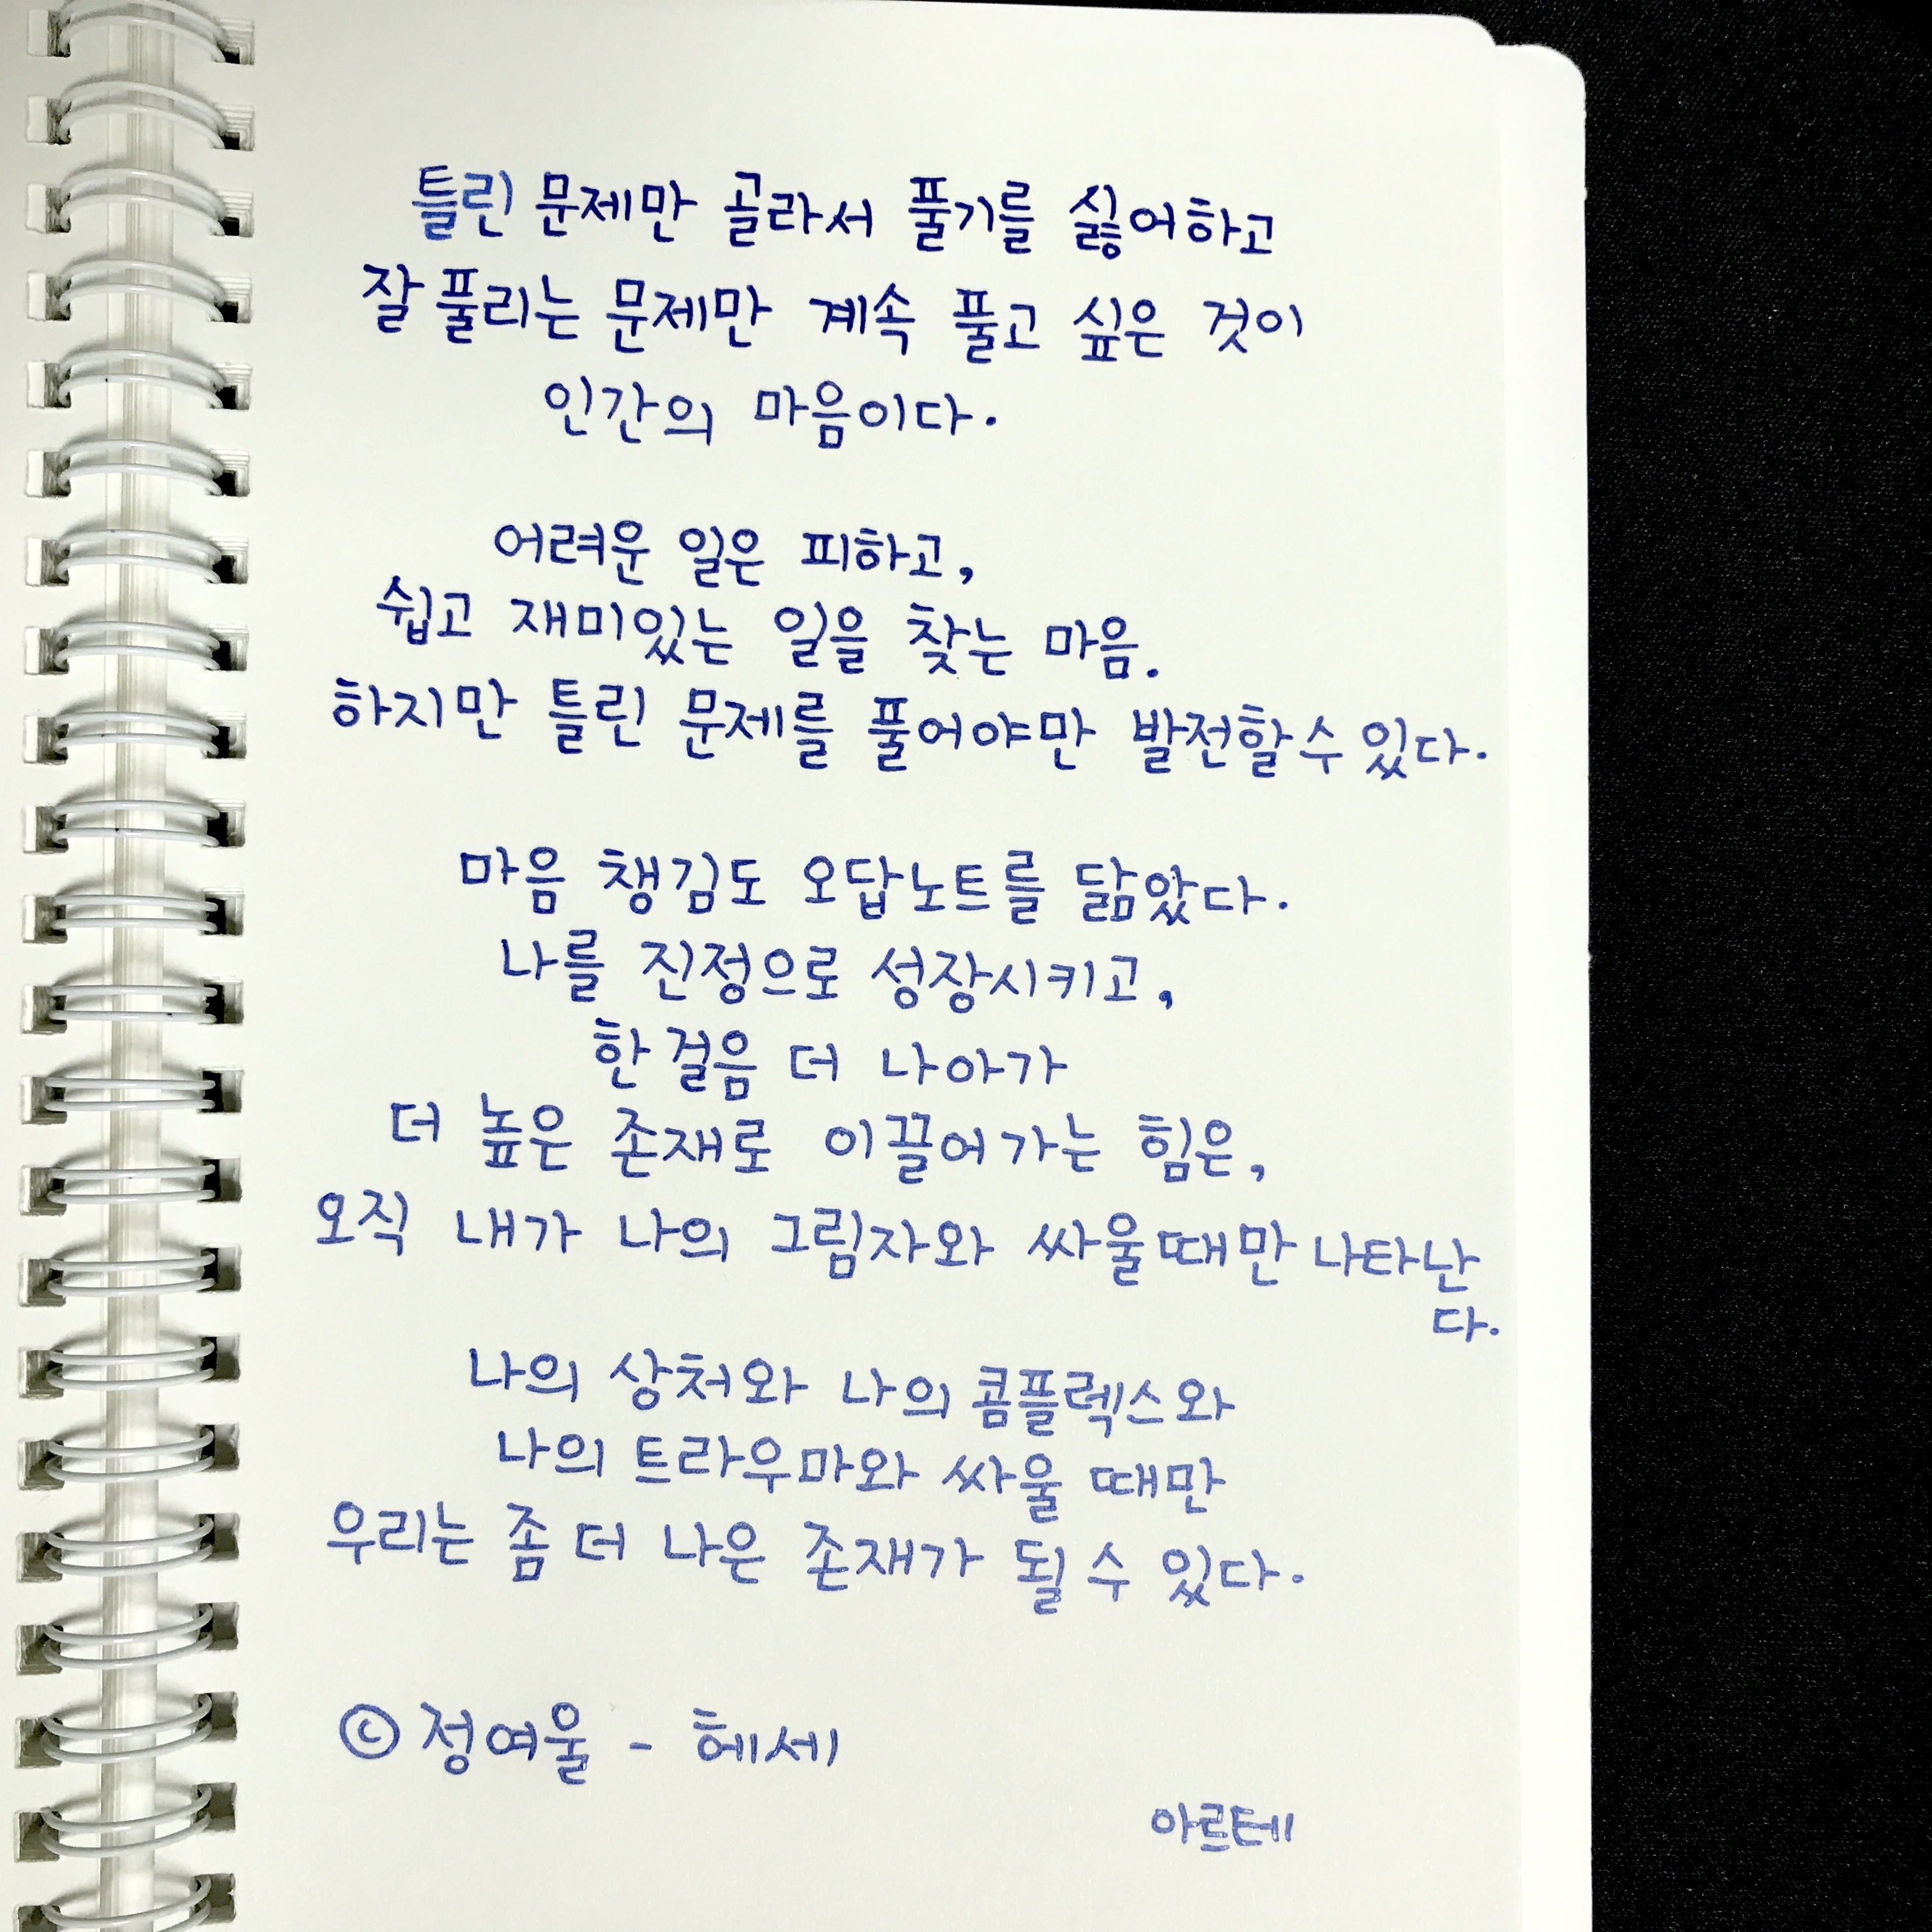 틀린 문제만 골라서 풀기를 싫어하고
잘 풀리는 문제만 계속 풀고 싶은 것이
인간의 마음이다.
어려운 일은 피하고,
쉽고 재미있는 일을 찾는 마음.
하지만 틀린 문제를 풀어야만 발전할 수 있다.
마음 챙김도 오답노트를 닮았다.
나를 진정으로 성장시키고,
한 걸음 더 나아가
더 높은 존재로 이끌어가는 힘은,
오직 내가 나의 그림자와 싸울 때만 나타난
다.
나의 상처와 나의 콤플렉스와
나의 트라우마와 싸울 때만
우리는 좀 더 나은 존재가 될 수 있다.
ⓒ 정여울 - 헤세
아르테